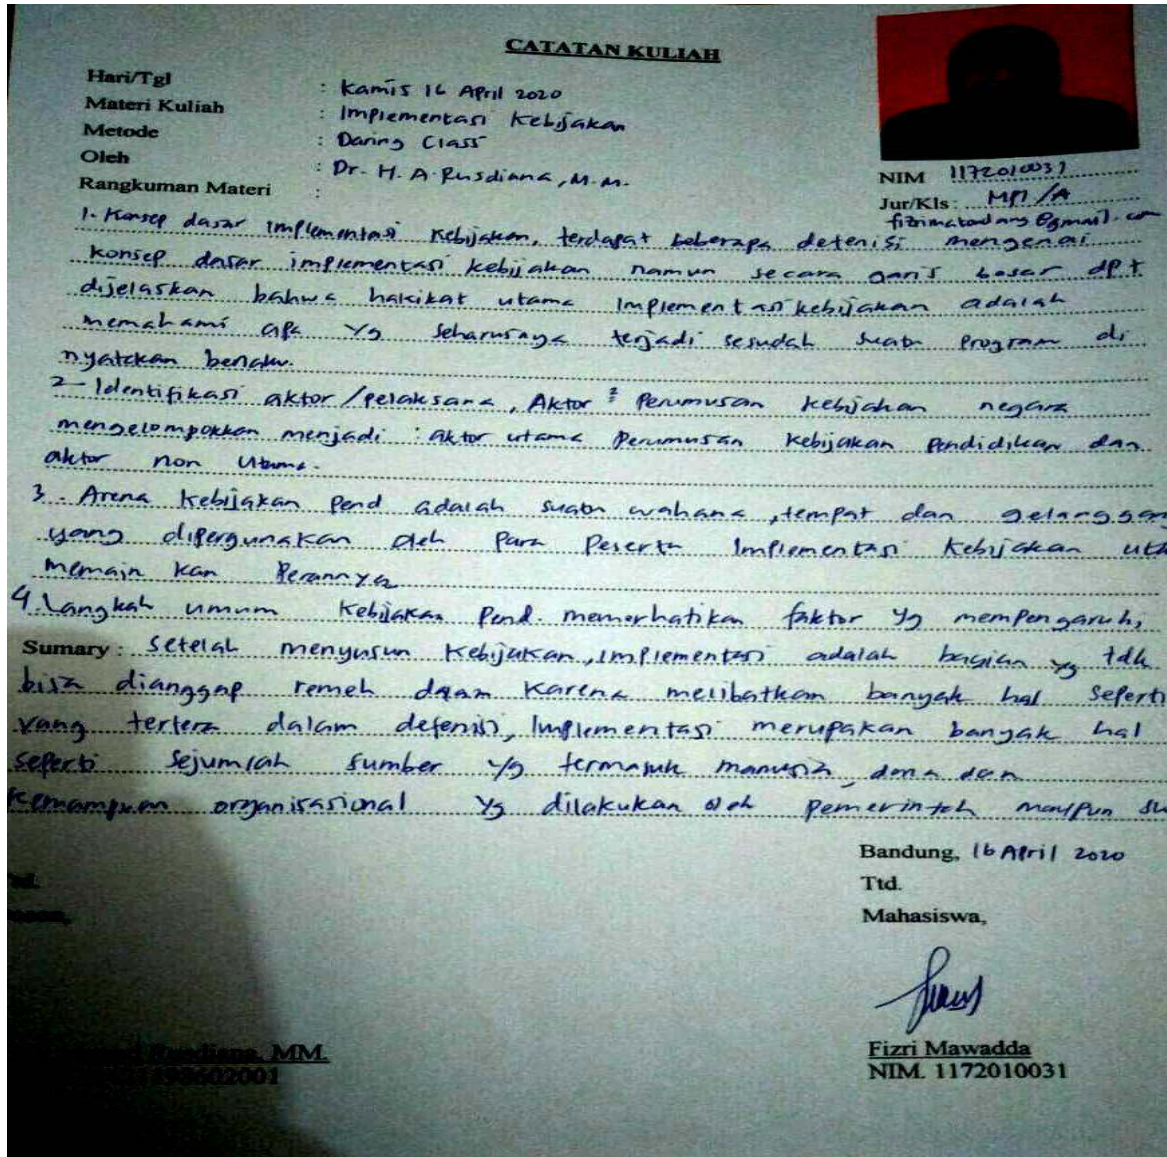 CATATAN KULIAH
Hari/Tgl : Kamis 16 April 2020
Materi Kuliah : Implementasi Kebijakan
Metode : Daring Class
Oleh : Dr. H. A. Rusdiana, M.M.
Rangkuman Materi :
NIM 1172010031
Jur/Kls : MPI/A
1. Konsep dasar implementasi Kebijakan, terdapat beberapa defenisi mengenai
Konsep dasar implementasi kebijakan namun secara garis besar dpt
dijelaskan bahwa hakikat utama Implementasi kebijakan adalah
memahami apa yg seharusnya terjadi sesudah suatu program di
nyatakan berlaku.
2 - Identifikasi aktor/pelaksana, Aktor ² Perumusan kebijakan negara
mengelompokkan menjadi : aktor utama Perumusan Kebijakan Pendidikan dan
aktor non Utama.
3 - Arena Kebijakan Pend adalah suatu wahana, tempat dan gelanggan
yang dipergunakan oleh Para Peserta Implementasi Kebijakan utk
memain kan Perannya
4. Langkah umum Kebijakan Pend. memerhatikan faktor yg mempengaruhi,
Sumary : Setelah menyusun Kebijakan, implementasi adalah bagian yg tdk
bisa dianggap remeh dalam karena melibatkan banyak hal seperti
yang tertera dalam defenisi, Implementasi merupakan banyak hal
seperti sejumlah sumber yg termasuk manusia, dana dan
Kemampuan organisasional yg dilakukan oleh pemerintah maupun su
Bandung, 16 April 2020
Ttd.
Mahasiswa,
Rusdiana, MM.
Fizri Mawadda
NIM. 1172010031